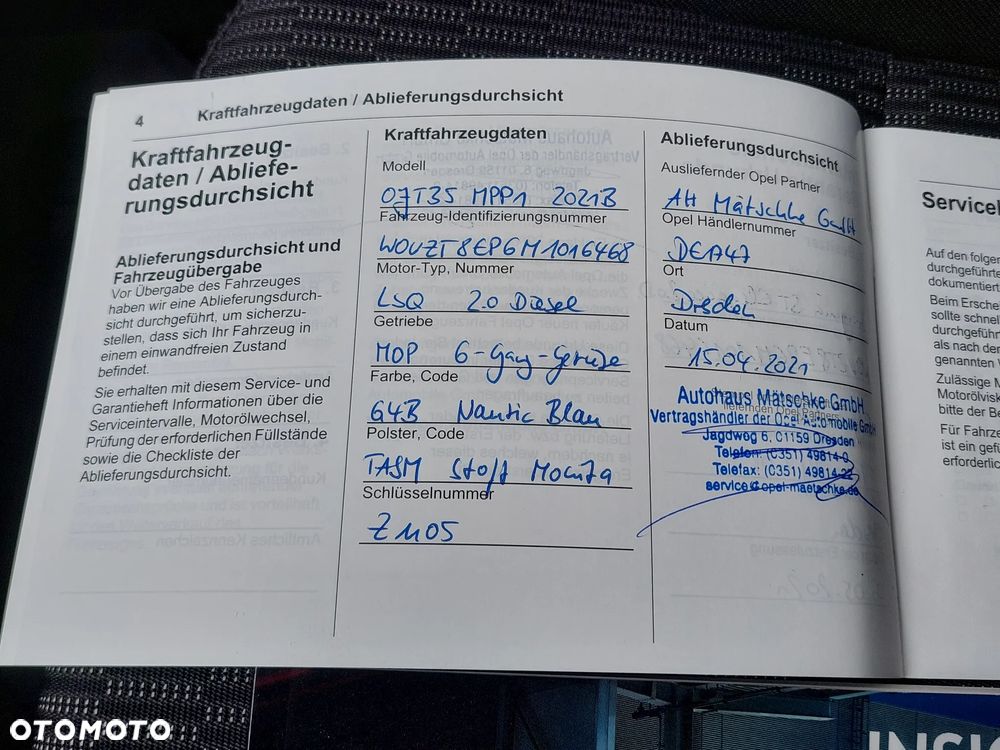 4
Kraftfahrzeugdaten / Ablieferungsdurchsicht
Kraftfahrzeug-
daten / Abliefe-
rungsdurchsicht
Ablieferungsdurchsicht und
Fahrzeugübergabe
Vor Übergabe des Fahrzeuges
haben wir eine Ablieferungsdurch-
sicht durchgeführt, um sicherzu-
stellen, dass sich Ihr Fahrzeug in
einem einwandfreien Zustand
befindet.
Sie erhalten mit diesem Service- und
Garantieheft Informationen über die
Serviceintervalle, Motorölwechsel,
Prüfung der erforderlichen Füllstände
sowie die Checkliste der
Ablieferungsdurchsicht.
Kraftfahrzeugdaten
Modell
07T35 MPP1 2021B
Fahrzeug-Identifizierungsnummer
W0VZT8EP6M1016468
Motor-Typ, Nummer
LSQ 2.0 Diesel
Getriebe
MOP 6-Gang-Getriebe
Farbe, Code
G4B Nautic Blau
Polster, Code
TASM Stoff Monita
Schlüsselnummer
Z1105
Ablieferungsdurchsicht
Ausliefernder Opel Partner
AH Mätschke GmbH
Opel Händlernummer
DE1747
Ort
Dresden
Datum
15.04.2021
Autohaus Mätschke GmbH
Vertragshändler der Opel Automobile GmbH
Jagdweg 6, 01159 Dresden
Telefon: (0351) 49814-0
Telefax: (0351) 49814-22
service@opel-maetschke.de
Auf den folgen
durchgeführte
dokumentiert
Beim Ersche
sollte schnel
durchgeführ
als nach der
genannten
Zulässige
Motorölvisk
bitte der Be
Für Fahrze
ist ein gef
erforderlic
OTOMOTO